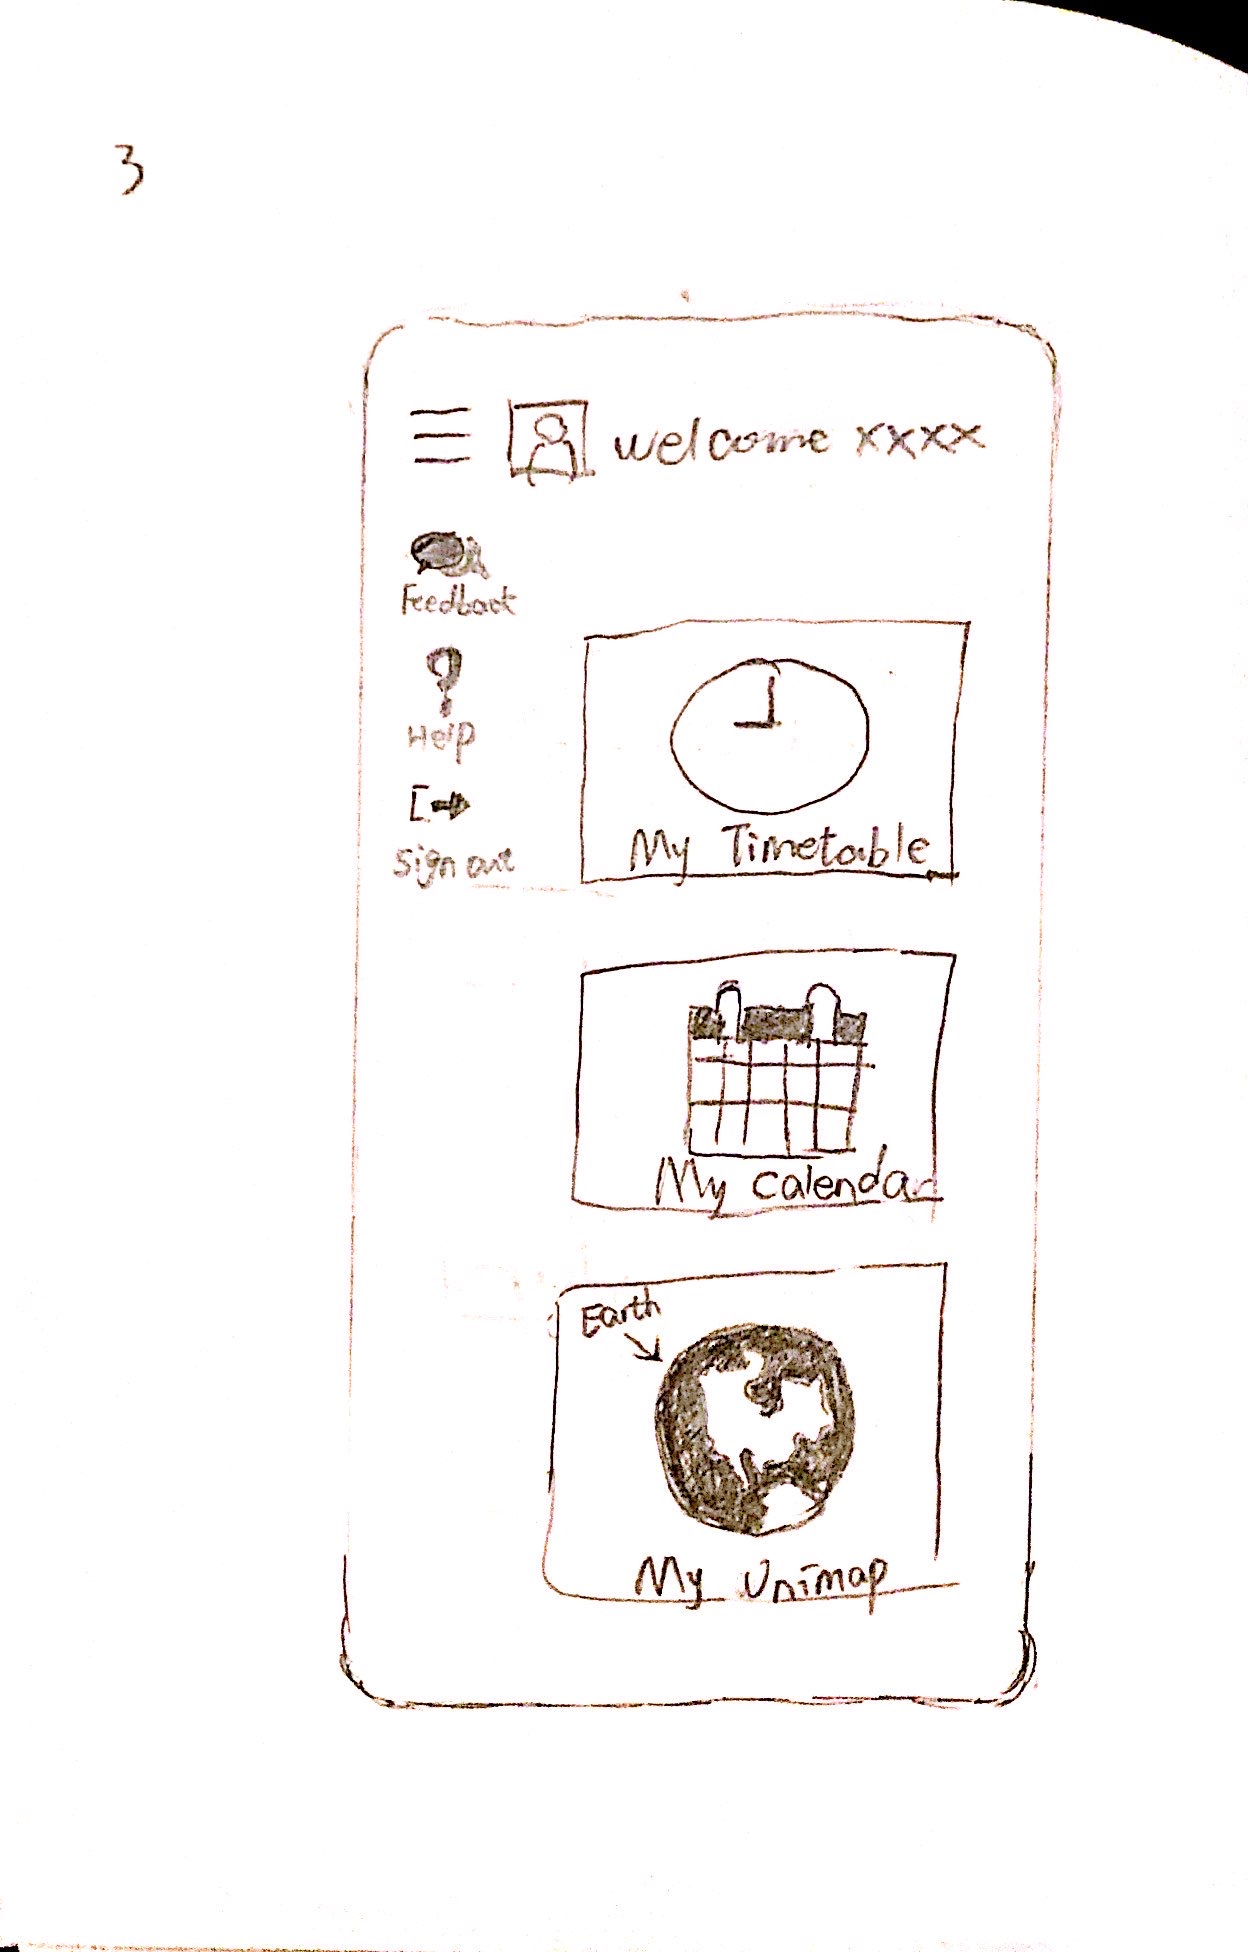 3
welcome xxxx
Feedback
?
Help
Sign out
My Timetable
My calendar
Earth
My Unimap